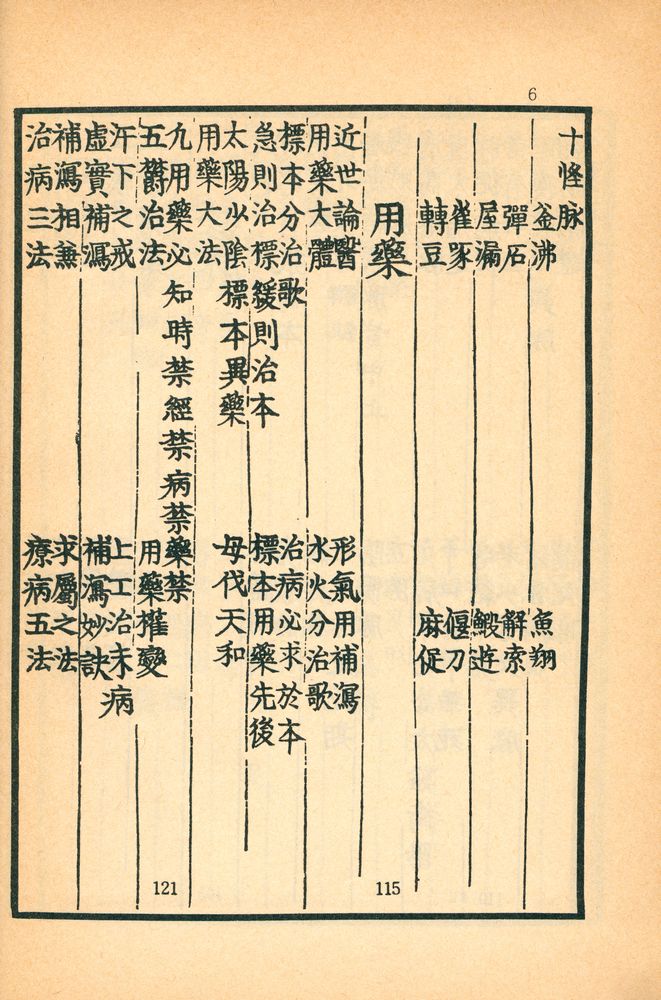 6
十怪脉
釜沸
魚翔
彈石
解索
屋漏
鰕遊
雀啄
偃刀
轉豆
麻促
用藥
115
近世論醫
形氣用補瀉
用藥大體
水火分治歌
標本分治歌
治病必求於本
急則治標緩則治本
標本用藥先後
太陽少陰標本異藥
毋伐天和
用藥大法
九用藥必知時禁經禁病禁藥禁
121
五欝治法
用藥權變
汗下之戒
上工治未病
虛實補瀉
補瀉妙訣
補瀉相兼
求屬之法
治病三法
療病五法